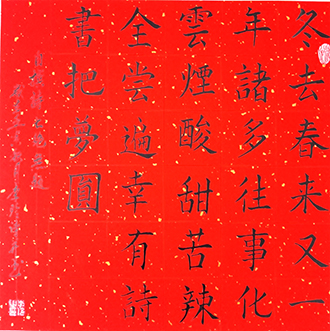 冬去春来又一
年諸多往事化
雲煙酸甜苦辣
全尝遍幸有詩
書把夢圓